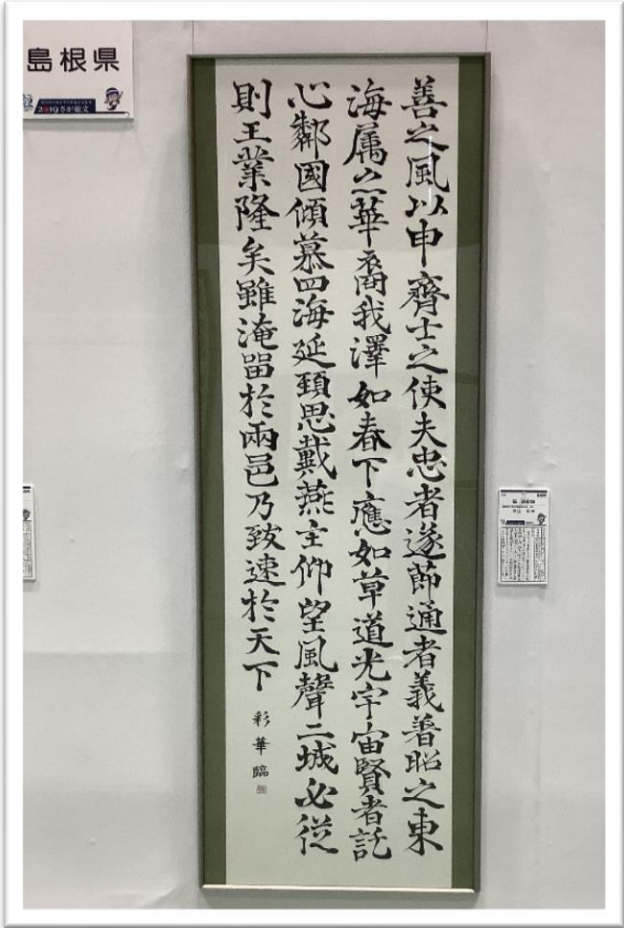 島根県
2019さが総文
善之風以申齊士之使夫忠者遂莭通者義著昭之東
海属之華裔我澤如春下應如草道光宇宙賢者託
心鄰國傾慕四海延頚思戴燕主仰望風聲二城必從
則王業隆矣雖淹留於兩邑乃致速於天下
彩華臨